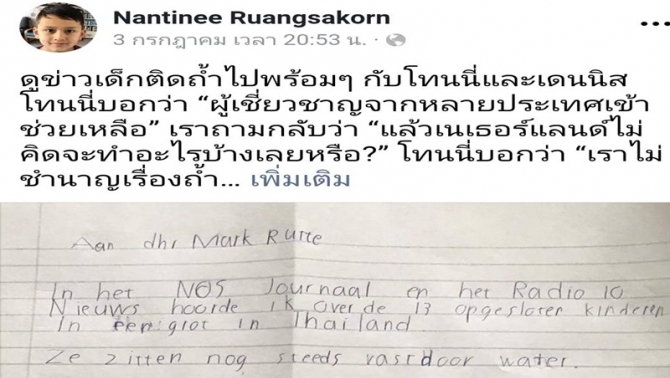 Nantinee Ruangsakorn
3 กรกฎาคม เวลา 20:53 น. ·
ดูข่าวเด็กติดถ้ำไปพร้อมๆ กับโทนนี่และเดนนิส
โทนนี่บอกว่า “ผู้เชี่ยวชาญจากหลายประเทศเข้า
ช่วยเหลือ” เราถามกลับว่า “แล้วเนเธอร์แลนด์ไม่
คิดจะทำอะไรบ้างเลยหรือ?” โทนนี่บอกว่า “เราไม่
ชำนาญเรื่องถ้ำ... เพิ่มเติม
Aan dhr Mark Rutte
In het NOS Journaal en het Radio 10
Nieuws hoorde ik over de 13 opgesloten kinderen
In een grot in Thailand
Ze zitten nog steeds vast door water.